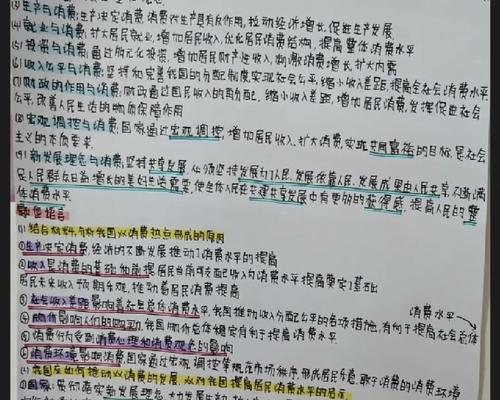 (3)生产与消费:生产决定消费,消费对生产具有反作用,拉动经济增长,促进生产发展.
(4)就业与消费:扩大居民就业,增加居民收入,优化居民消费结构,提高整体消费水平
(5)投资与消费:通过股元化投资,增加居民财产性收入,刺激消费增长,扩大内需
(6)收入公平与消费:坚持和完善我国的分配制度实现社会公平,缩小收入差距,提高全社会消费水平
(7)财政的作用与消费:财政通过国民收入的再分配,缩小收入差距,增加居民消费,发挥促进社会
公平,改善人民生活的物质保障作用
(8)宏观调控与消费:国家通过宏观调控,增加居民收入,扩大消费,实现共同富裕的目标,是社会
主义的本质要求
(9)新发展理念与消费:坚持共享发展,必须坚持发展为了人民,发展依靠人民,发展成果由人民共享,不断满
足人民群众日益增长的美好生活需要,使全体人民在共建共享发展中有更多的获得感,提高人民的整
体消费水平
(1)结合材料,分析我国 消费热点形成的原因
①生产决定消费,经济的不断发展推动 消费水平的提高
②收入是消费的基础和前提,居民当前可支配收入 消费水平提高奠定 基础
居民未来收入预期乐观,推动着居民消费提高
③社会收入差距影响着社会总体消费水平,我国推动收入分配公平的各项措施,有利于提高社会总体
消费水平
④物价影响人们的购买力,我国物价总体稳定有利于提高消费水平
⑤消费行为受到消费心理和消费观念的影响
⑥消费环境影响消费 国家通过宏观调控 市场秩序,形成居民乐意,敢于消费的消费环境
(2)我国应如何推动 消费的发展/ 对我国提高居民消费水平的启示
①国家:贯彻落实新发展理念,大力发展生产力